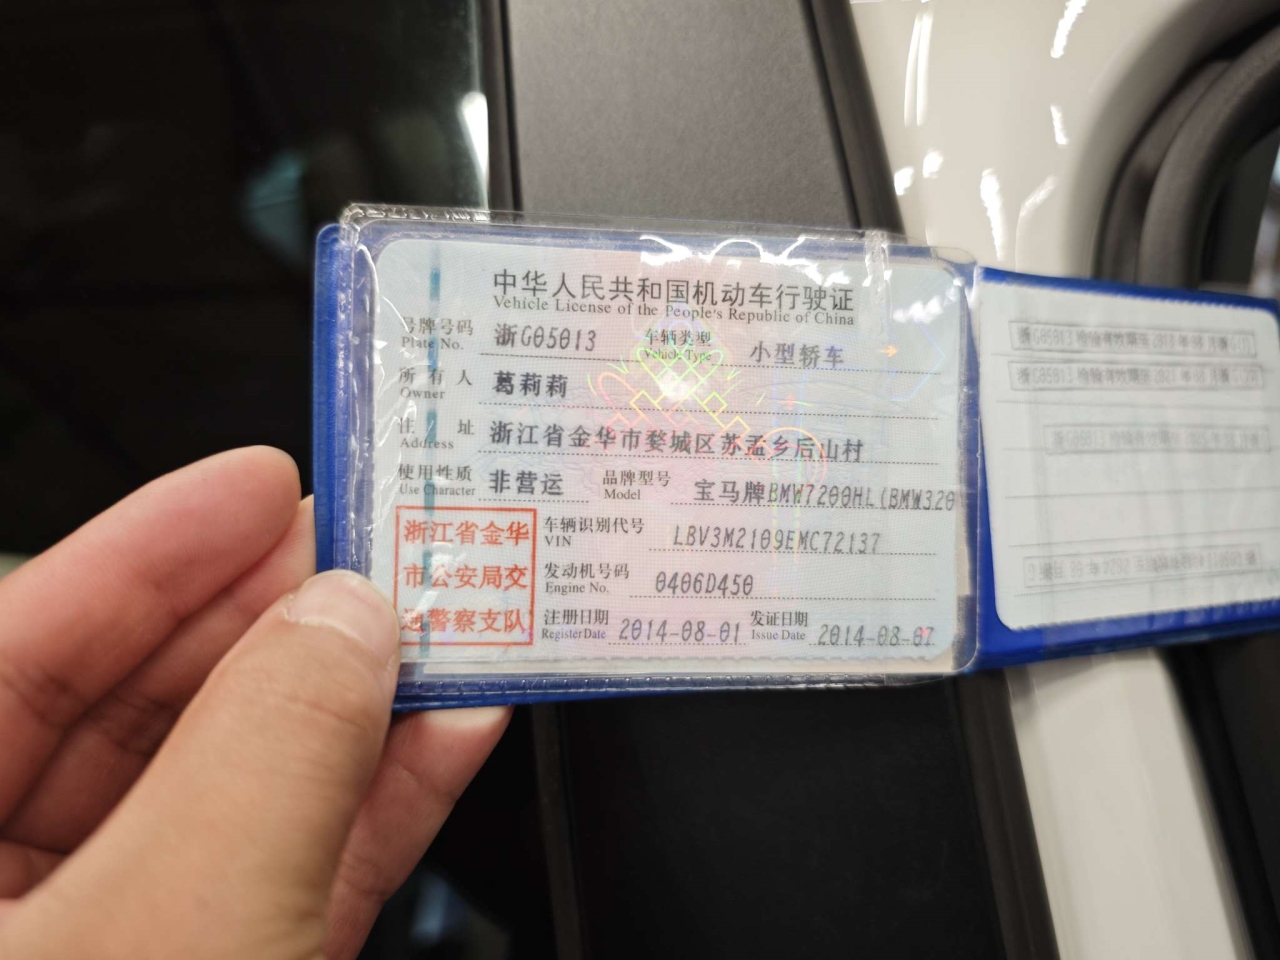 中华人民共和国机动车行驶证
Vehicle License of the People's Republic of China
号牌号码 浙G05013 车辆类型 小型轿车
Plate No. Vehicle Type
所有人 葛莉莉
Owner
住址 浙江省金华市婺城区苏孟乡后山村
Address
使用性质 非营运 品牌型号 宝马牌BMW7200HL(BMW320
Use Character Model
浙江省金华
市公安局交
通警察支队
车辆识别代号 LBV3M2109EMC72137
VIN
发动机号码 0406D450
Engine No.
注册日期 2014-08-01 发证日期 2014-08-07
Register Date Issue Date